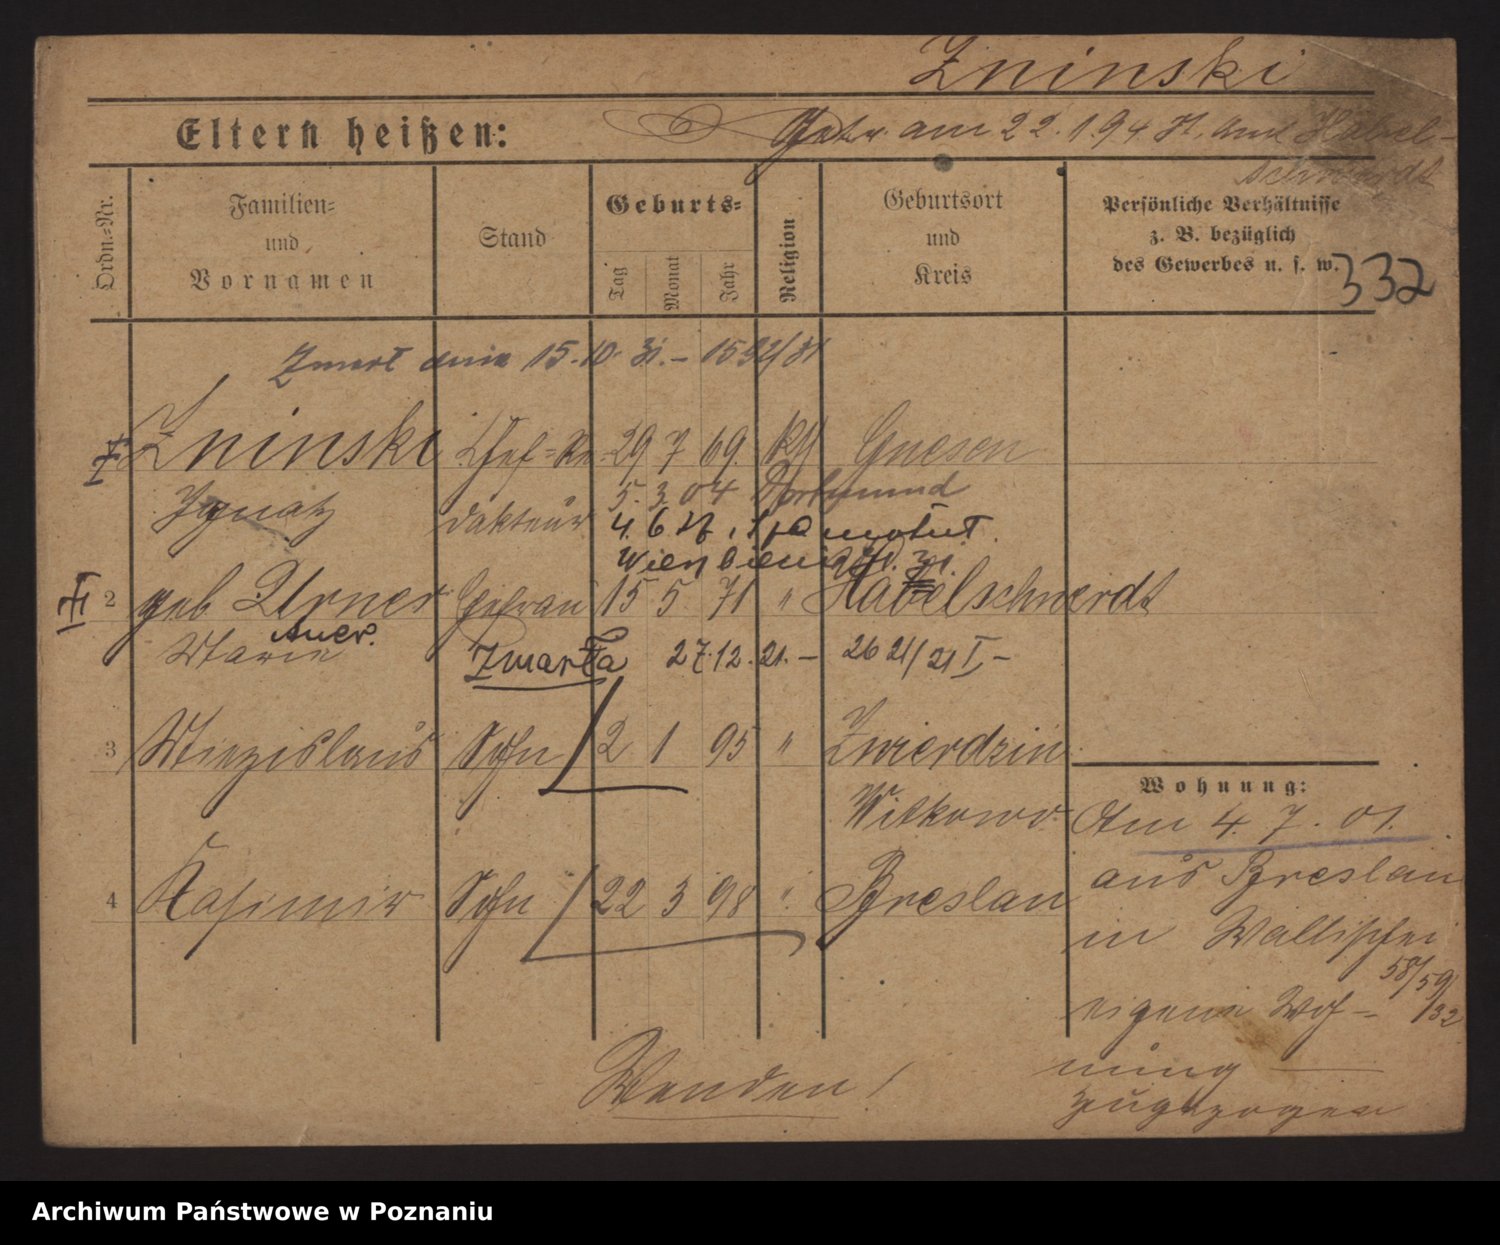 Zninski
Eltern heißen:
Getr. am 22.1.94. St. Amt Habel-
schwerdt
Ordn.-Nr.
Familien-
und
Vornamen
Stand
Geburts-
Tag
Monat
Jahr
Religion
Geburtsort
und
Kreis
Persönliche Verhältnisse
z. B. bezüglich
des Gewerbes u. s. w.
332
Zmarł dnia 15.10. 31. – 1532/31
Zninski Chef-Re- 29 7 69. kth Gnesen
Ignatz dakteur 5. 3. 04 Dortmund
4. 6
2 geb Urner Ehefrau 15 5 71 " Habelschwerdt
Auer.
Marie Zmarła 27.12.21. – 2621/21 I –
3 Miezislaus Sohn 2 1 95 " Zwierdzin
Witkowo.
4 Kasimir Sohn 22 3 98 " Breslau
Wohnung:
Am 4. 7. 01.
aus Breslau
in Wallischei
58/59
/32
eigene Woh-
nung
zugezogen
Wenden!
Archiwum Państwowe w Poznaniu